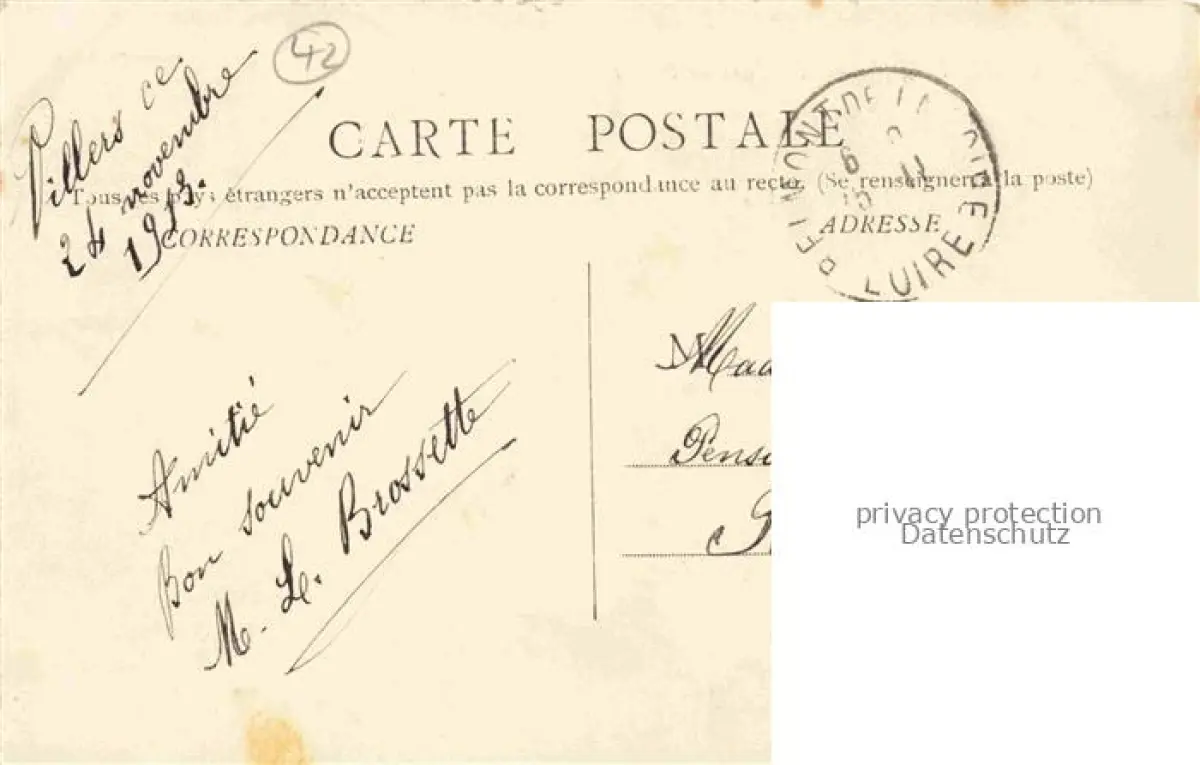 42
Villers ce
24 novembre
1913.
CARTE POSTALE
Tous les pays étrangers n'acceptent pas la correspondance au recto. (Se renseigner à la poste)
CORRESPONDANCE
ADRESSE
BELMONT DE LA LOIRE
LOIRE
Amitié
Bon souvenir
M. Le. Brossette
M
privacy protection
Datenschutz